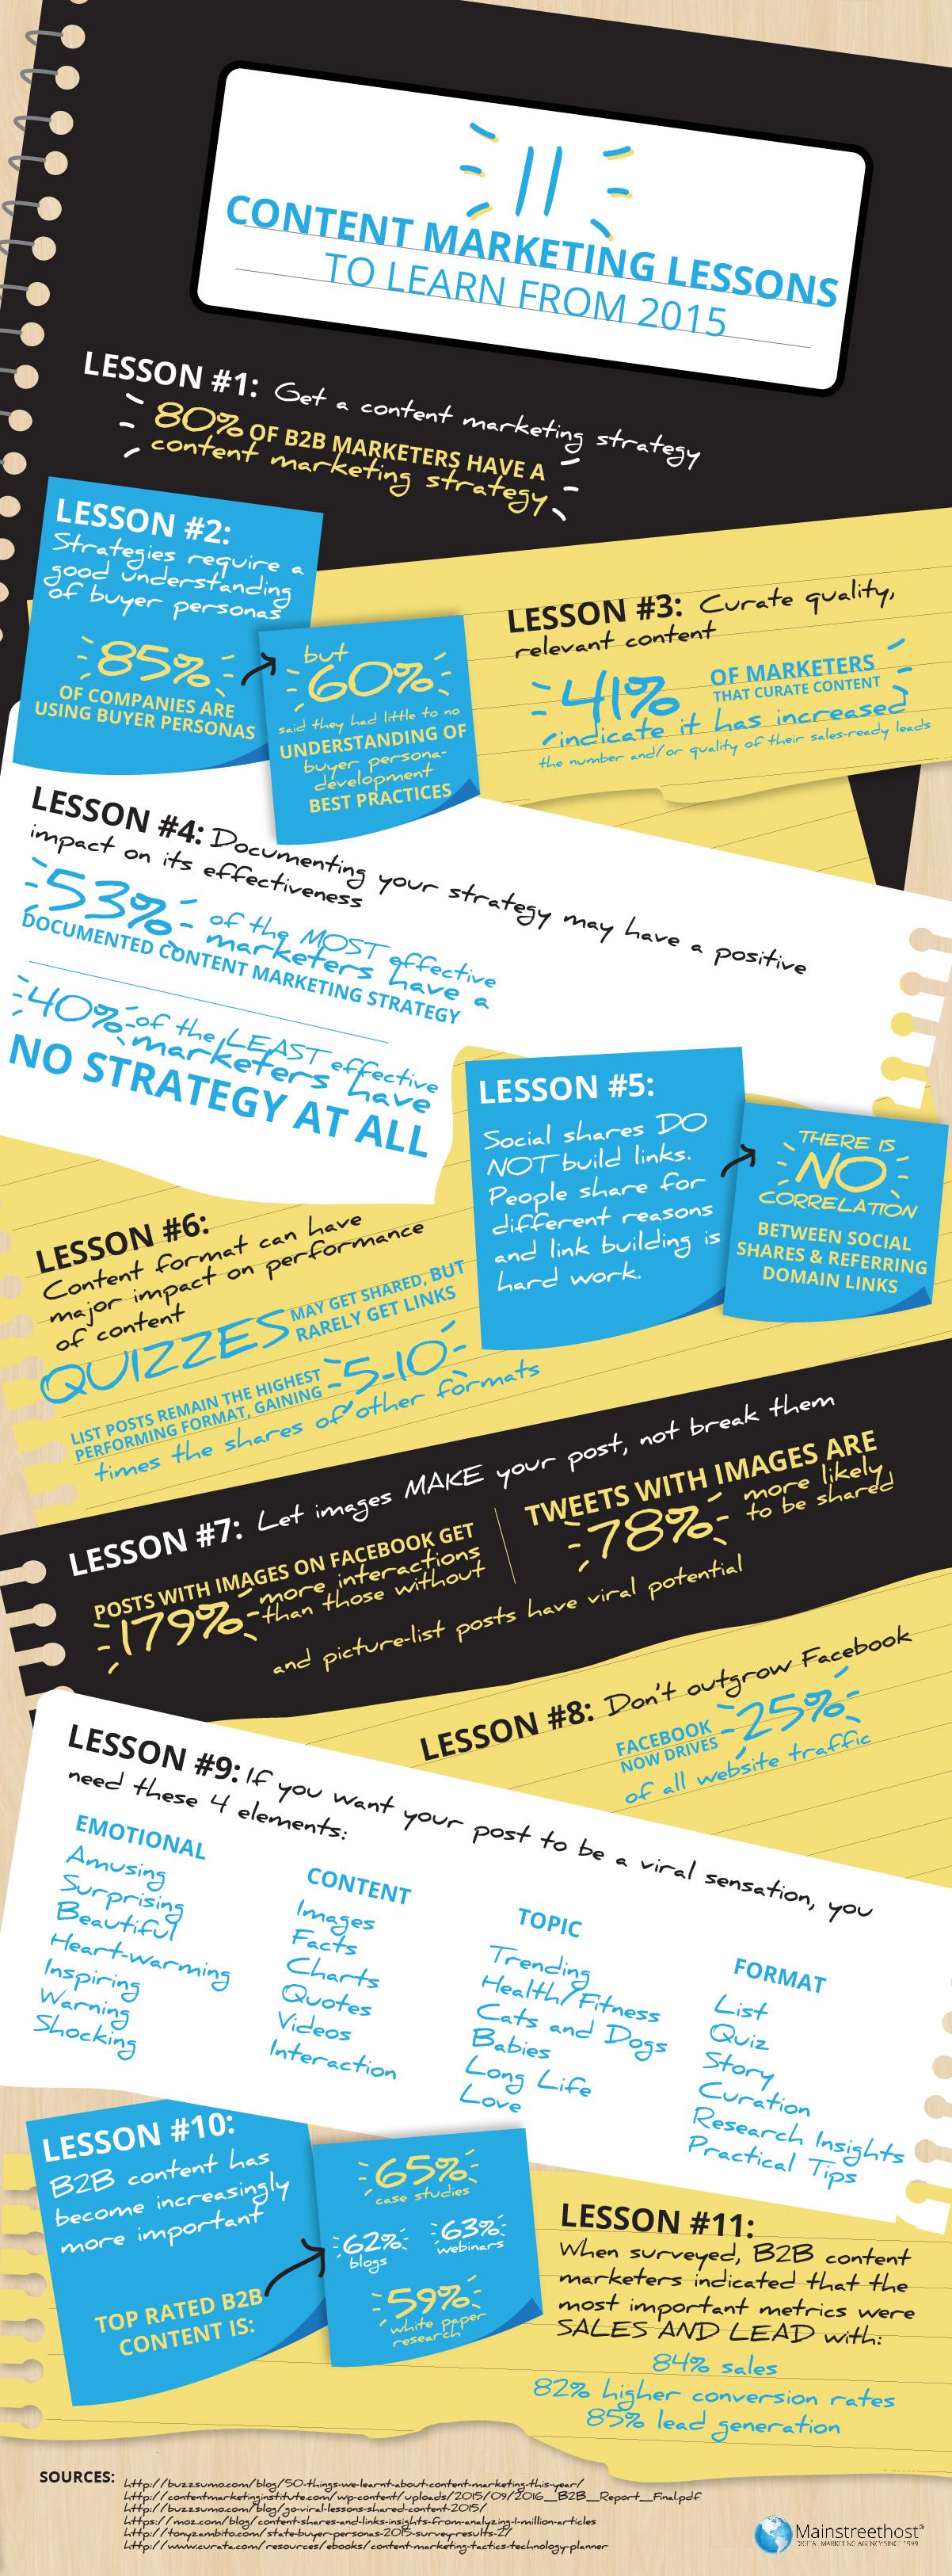 11
CONTENT MARKETING LESSONS
TO LEARN FROM 2015
LESSON #1: Get a content marketing strategy
80% OF B2B MARKETERS HAVE A
content marketing strategy
LESSON #2:
Strategies require a
good understanding
of buyer personas
85%
OF COMPANIES ARE
USING BUYER PERSONAS
but
60%
said they had little to no
UNDERSTANDING OF
buyer persona-
development
BEST PRACTICES
LESSON #3: Curate quality,
relevant content
41% OF MARKETERS
THAT CURATE CONTENT
indicate it has increased
the number and/or quality of their sales-ready leads
LESSON #4: Documenting your strategy may have a positive
impact on its effectiveness
53% of the MOST effective
marketers have a
DOCUMENTED CONTENT MARKETING STRATEGY
40% of the LEAST effective
marketers have
NO STRATEGY AT ALL
LESSON #5:
Social shares DO
NOT build links.
People share for
different reasons
and link building is
hard work.
THERE IS
NO
CORRELATION
BETWEEN SOCIAL
SHARES & REFERRING
DOMAIN LINKS
LESSON #6:
Content format can have
major impact on performance
of content
QUIZZES MAY GET SHARED, BUT
RARELY GET LINKS
LIST POSTS REMAIN THE HIGHEST
PERFORMING FORMAT, GAINING 5-10
times the shares of other formats
LESSON #7: Let images MAKE your post, not break them
POSTS WITH IMAGES ON FACEBOOK GET
179% more interactions
than those without
TWEETS WITH IMAGES ARE
78% more likely
to be shared
and picture-list posts have viral potential
LESSON #8: Don't outgrow Facebook
FACEBOOK
NOW DRIVES 25%
of all website traffic
LESSON #9: If you want your post to be a viral sensation, you
need these 4 elements:
EMOTIONAL
Amusing
Surprising
Beautiful
Heart-warming
Inspiring
Warning
Shocking
CONTENT
Images
Facts
Charts
Quotes
Videos
Interaction
TOPIC
Trending
Health/Fitness
Cats and Dogs
Babies
Long Life
Love
FORMAT
List
Quiz
Story
Curation
Research Insights
Practical Tips
LESSON #10:
B2B content has
become increasingly
more important
TOP RATED B2B
CONTENT IS:
65%
case studies
62%
blogs
63%
webinars
59%
white paper
research
LESSON #11:
When surveyed, B2B content
marketers indicated that the
most important metrics were
SALES AND LEAD with:
84% sales
82% higher conversion rates
85% lead generation
SOURCES:
http://buzzsumo.com/blog/50-things-we-learnt-about-content-marketing-this-year/
http://contentmarketinginstitute.com/wp-content/uploads/2015/09/2016_B2B_Report_Final.pdf
http://buzzsumo.com/blog/go-viral-lessons-shared-content-2015/
https://moz.com/blog/content-shares-and-links-insights-from-analyzing-1-million-articles
http://tonyzambito.com/state-buyer-personas-2015-survey-results-2/
http://www.curata.com/resources/ebooks/content-marketing-tactics-technology-planner
Mainstreethost
DIGITAL MARKETING AGENCY SINCE 1999